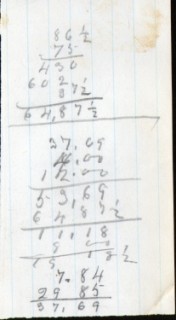 86½
75
430
602
37½
64,87½
37.69
4.00
12.00
53,69
64 87½
11,18
7.84
29 85
37,69